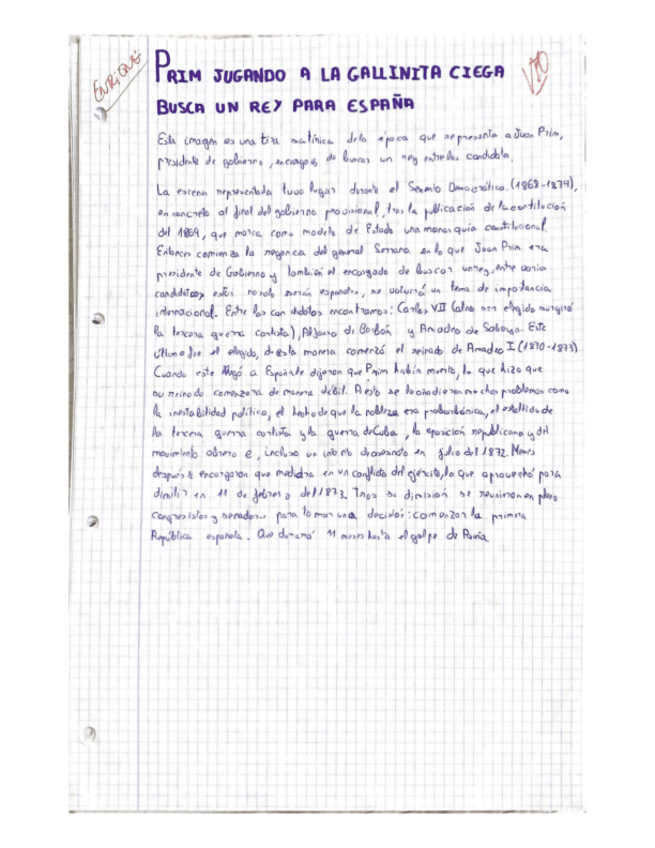 ENRIQUE
PRIM JUGANDO A LA GALLINITA CIEGA
BUSCA UN REY PARA ESPAÑA
10
Esta imagen es una tira satírica de la época que representa a Juan Prim,
presidente de gobierno, encargado de buscar un rey entre los candidatos.
La escena representada tuvo lugar durante el Sexenio Democrático (1868-1874),
en concreto al final del gobierno provisional, tras la publicación de la constitución
del 1869, que marca como modelo de Estado una monarquía constitucional.
Entonces comienza la regencia del general Serrano en lo que Juan Prim era
presidente de Gobierno y también el encargado de buscar un rey, entre varios
candidatos, estos no solo serán españoles, se volverá un tema de importancia
internacional. Entre los candidatos encontramos: Carlos VII (al no ser elegido surgirá
la tercera guerra carlista), Alfonso de Borbón y Amadeo de Saboya. Este
último fue el elegido, de esta manera comenzó el reinado de Amadeo I (1870-1873)
Cuando este llegó a España le dijeron que Prim había muerto, lo que hizo que
su reinado comenzara de manera débil. A esto se le añadieron muchos problemas como
la inestabilidad política, el hecho de que la nobleza era proborbónica, el estallido de
la tercera guerra carlista y la guerra de Cuba, la oposición republicana y del
movimiento obrero e, incluso un intento de asesinato en julio del 1872. Meses
después le encargaron que mediara en un conflicto del ejército, lo que aprovechó para
dimitir en 11 de febrero del 1873. Tras su dimisión se reunieron en pleno
congresistas y senadores para tomar una decisión: comenzar la primera
República española. Que durará 11 meses hasta el golpe de Pavía